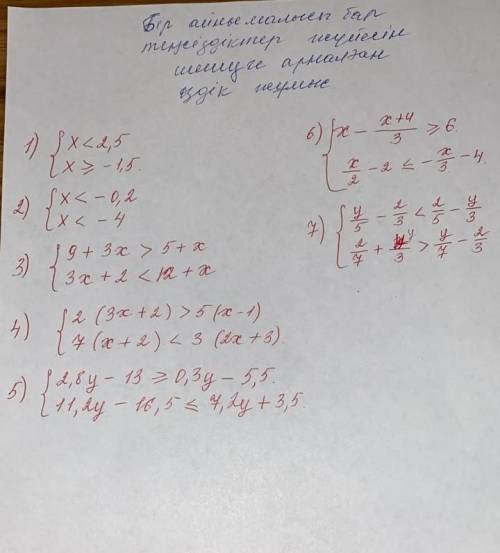 Бір айнымалысы бар
теңсіздіктер жүйесін
шешуге арналған
үздік жұмыс
1) { x < 2,5
x ⩾ -1,5.
2) { x < -0,2
x < -4
3) { 9 + 3x > 5 + x
3x + 2 < 12 + x
4) { 2 (3x + 2) > 5 (x - 1)
7 (x + 2) < 3 (2x + 3)
5) { 2,8y - 13 ⩾ 0,3y - 5,5.
11,2y - 16,5 ⩽ 7,2y + 3,5.
6) { x - (x+4)/3 ⩾ 6
x/2 - 2 ⩽ -x/3 - 4.
7) { y/5 - 2/3 < 2/5 - y/3
2/7 + y/3 > y/7 - 2/3